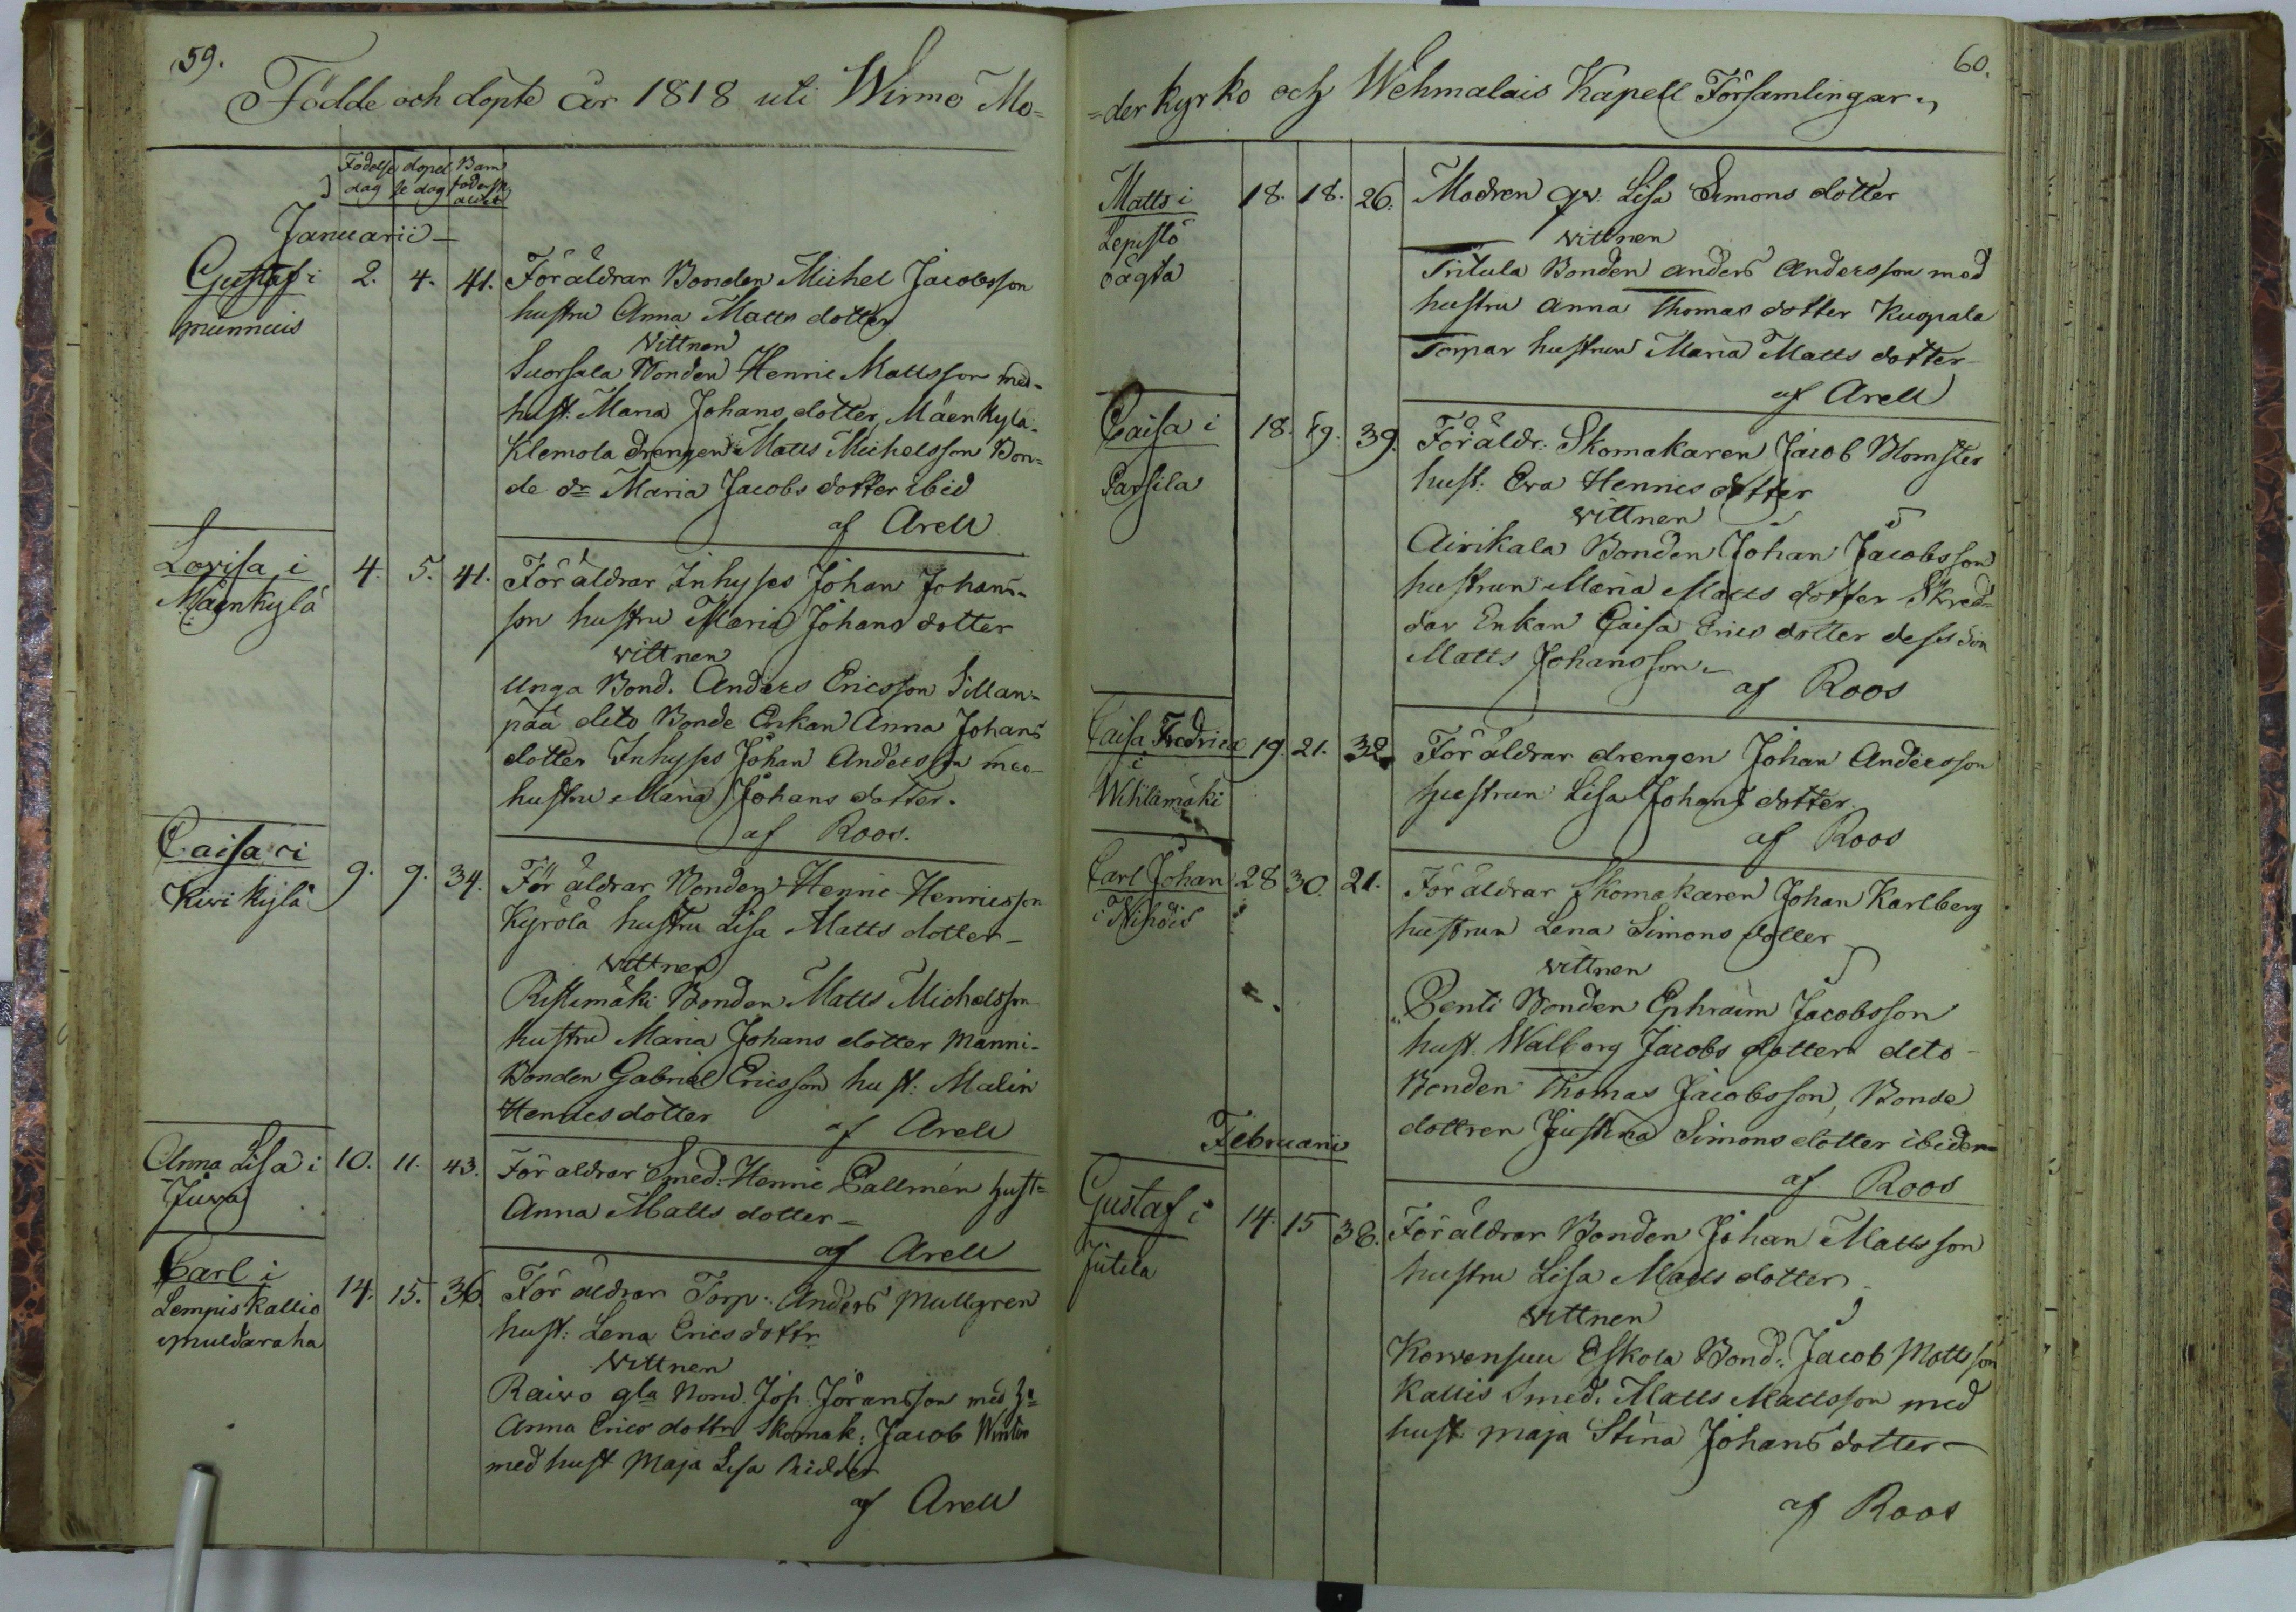 59.
Födde och döpte år 1818 uti Wirmo Mo=
Födelse dag
döpel se dag
Barn födersk ålder
Januarii
Gustaf i
munnuis
2. 4. 41.
Föräldrar Bonden Michel Jacobsson
hustru Anna Matts dotter
Vittnen
Suorsala Bonden Henric Mattsson med
hust. Maria Johans dotter, Mäenkylä
Klemola drengen Matts Michelsson Bon=
de dr Maria Jacobs dotter ibid
af Arell
Lovisa i
Mäenkylä
4. 5. 41.
Föräldrar Inhyses Johan Johans-
son hustru Maria Johans dotter
vittnen
Unga Bond. Anders Ericsson Sillan=
pää dito Bonde Enkan Anna Johans
dotter Inhyses Johan Andersson med
hustru Maria Johans dotter.
af Roos.
Caisa i
Kivikylä
9. 9. 34.
Föräldrar Bonden Henric Henricsson
Kyrölä hustru Lisa Matts dotter
vittnen
Ristimäki Bonden Matts Michelsson
hustru Maria Johans dotter Manni-
Bonden Gabriel Ericsson hust: Malin
Henricsdotter
af Arell
Anna Lisa i
Juva
10. 11. 43.
Föräldrar Smed. Henric Pallmén hust=
Anna Matts dotter
af Arell
Carl i
Lempis Kallio
muldaraha
14. 15. 36.
Föräldrar Torp. Anders Mullgren
hust: Lena Erics dottr
Vittnen
Raivo gla Bond. Jos. Jöransson med h=
Anna Erics dottr Skomak: Jacob Winter
med hust Maja Lisa Ridder
af Arell
60.
=der kyrko och Wehmalais Kapell Församlingar.
Matts i
Lepistö
sågta
18. 18. 26.
Modren qv. Lisa Simons dotter
vittnen
Tritula Bonden Anders Andersson med
hustru Anna Thomas dotter Kuopala
Torpar hustrun Maria Matts dotter
af Arell
Caisa i
Parsila
18. 19. 39.
Föräldr. Skomakaren Jacob Blomster
hust. Eva Henrics dotter
vittnen
Airikala Bonden Johan Jacobsson
hustrun Maria Matts dotter Skred=
dar Enkan Caisa Erics dotter dess Son
Matts Johansson
af Roos
Caisa Fredrica
i
Wihlämäki
19. 21. 32.
Föräldrar drengen Johan Andersson
hustrun Lisa Johans dotter.
af Roos
Carl Johan
i Nihois
28 30. 21.
Föräldrar Skomakaren Johan Karlberg
hustrun Lena Simons dotter
vittnen
Penti Bonden Ephraim Jacobsson
hust. Walborg Jacobs dotter dito
Bonden Thomas Jacobsson, Bonde
dottren Justina Simons dotter ibidem
af Roos
Februarii
Gustaf i
Jutila
14. 15 38.
Föräldrar Bonden Johan Mattsson
hustru Lisa Matts dotter
vittnen
Korvensuu Eskola Bond. Jacob Mattsson
Kallis Smed. Matts Mattsson med
hust Maja Stina Johans dotter
af Roos